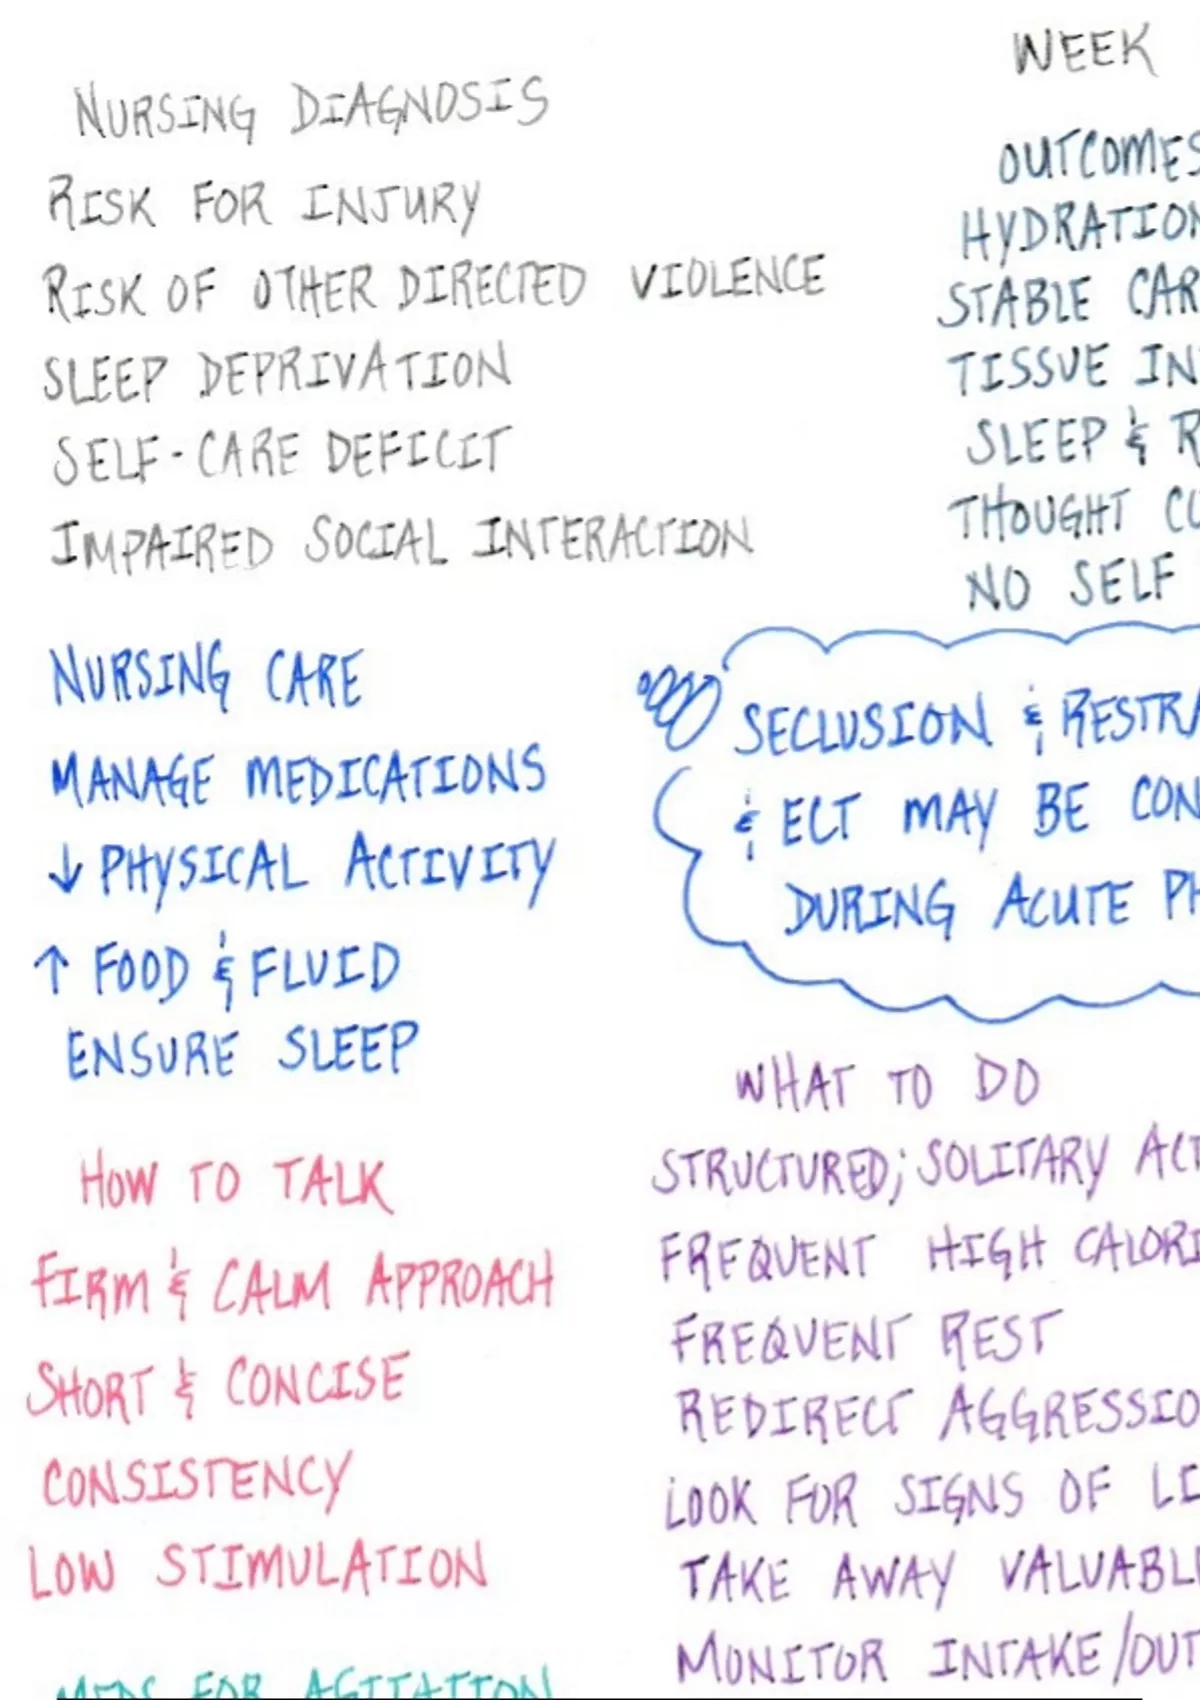 WEEK
NURSING DIAGNOSIS
RISK FOR INJURY
RISK OF OTHER DIRECTED VIOLENCE
SLEEP DEPRIVATION
SELF-CARE DEFICIT
IMPAIRED SOCIAL INTERACTION
OUTCOMES
HYDRATION
STABLE CAR
TISSUE IN
SLEEP & R
THOUGHT CO
NO SELF
NURSING CARE
MANAGE MEDICATIONS
↓ PHYSICAL ACTIVITY
↑ FOOD & FLUID
ENSURE SLEEP
SECLUSION & RESTRA
& ECT MAY BE CON
DURING ACUTE PH
HOW TO TALK
FIRM & CALM APPROACH
SHORT & CONCISE
CONSISTENCY
LOW STIMULATION
WHAT TO DO
STRUCTURED; SOLITARY ACT
FREQUENT HIGH CALORI
FREQUENT REST
REDIRECT AGGRESSIO
LOOK FOR SIGNS OF LI
TAKE AWAY VALUABL
MONITOR INTAKE/OUT
MEDS FOR AGITATION